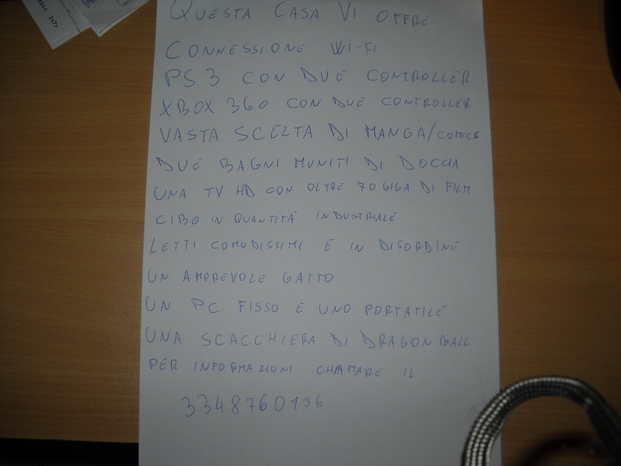 QUESTA CASA VI OFFRE:
CONNESSIONE WI-FI
PS3 CON DUE CONTROLLER
XBOX 360 CON DUE CONTROLLER
VASTA SCELTA DI MANGA/COMICS
DUE BAGNI MUNITI DI DOCCIA
UNA TV HD CON OLTRE 70 GIGA DI FILM
CIBO IN QUANTITÀ INDUSTRIALE
LETTI COMODISSIMI E IN DISORDINE
UN AMOREVOLE GATTO
UN PC FISSO E UNO PORTATILE
UNA SCACCHIERA DI DRAGON BALL
PER INFORMAZIONI CHIAMARE IL
3348760136